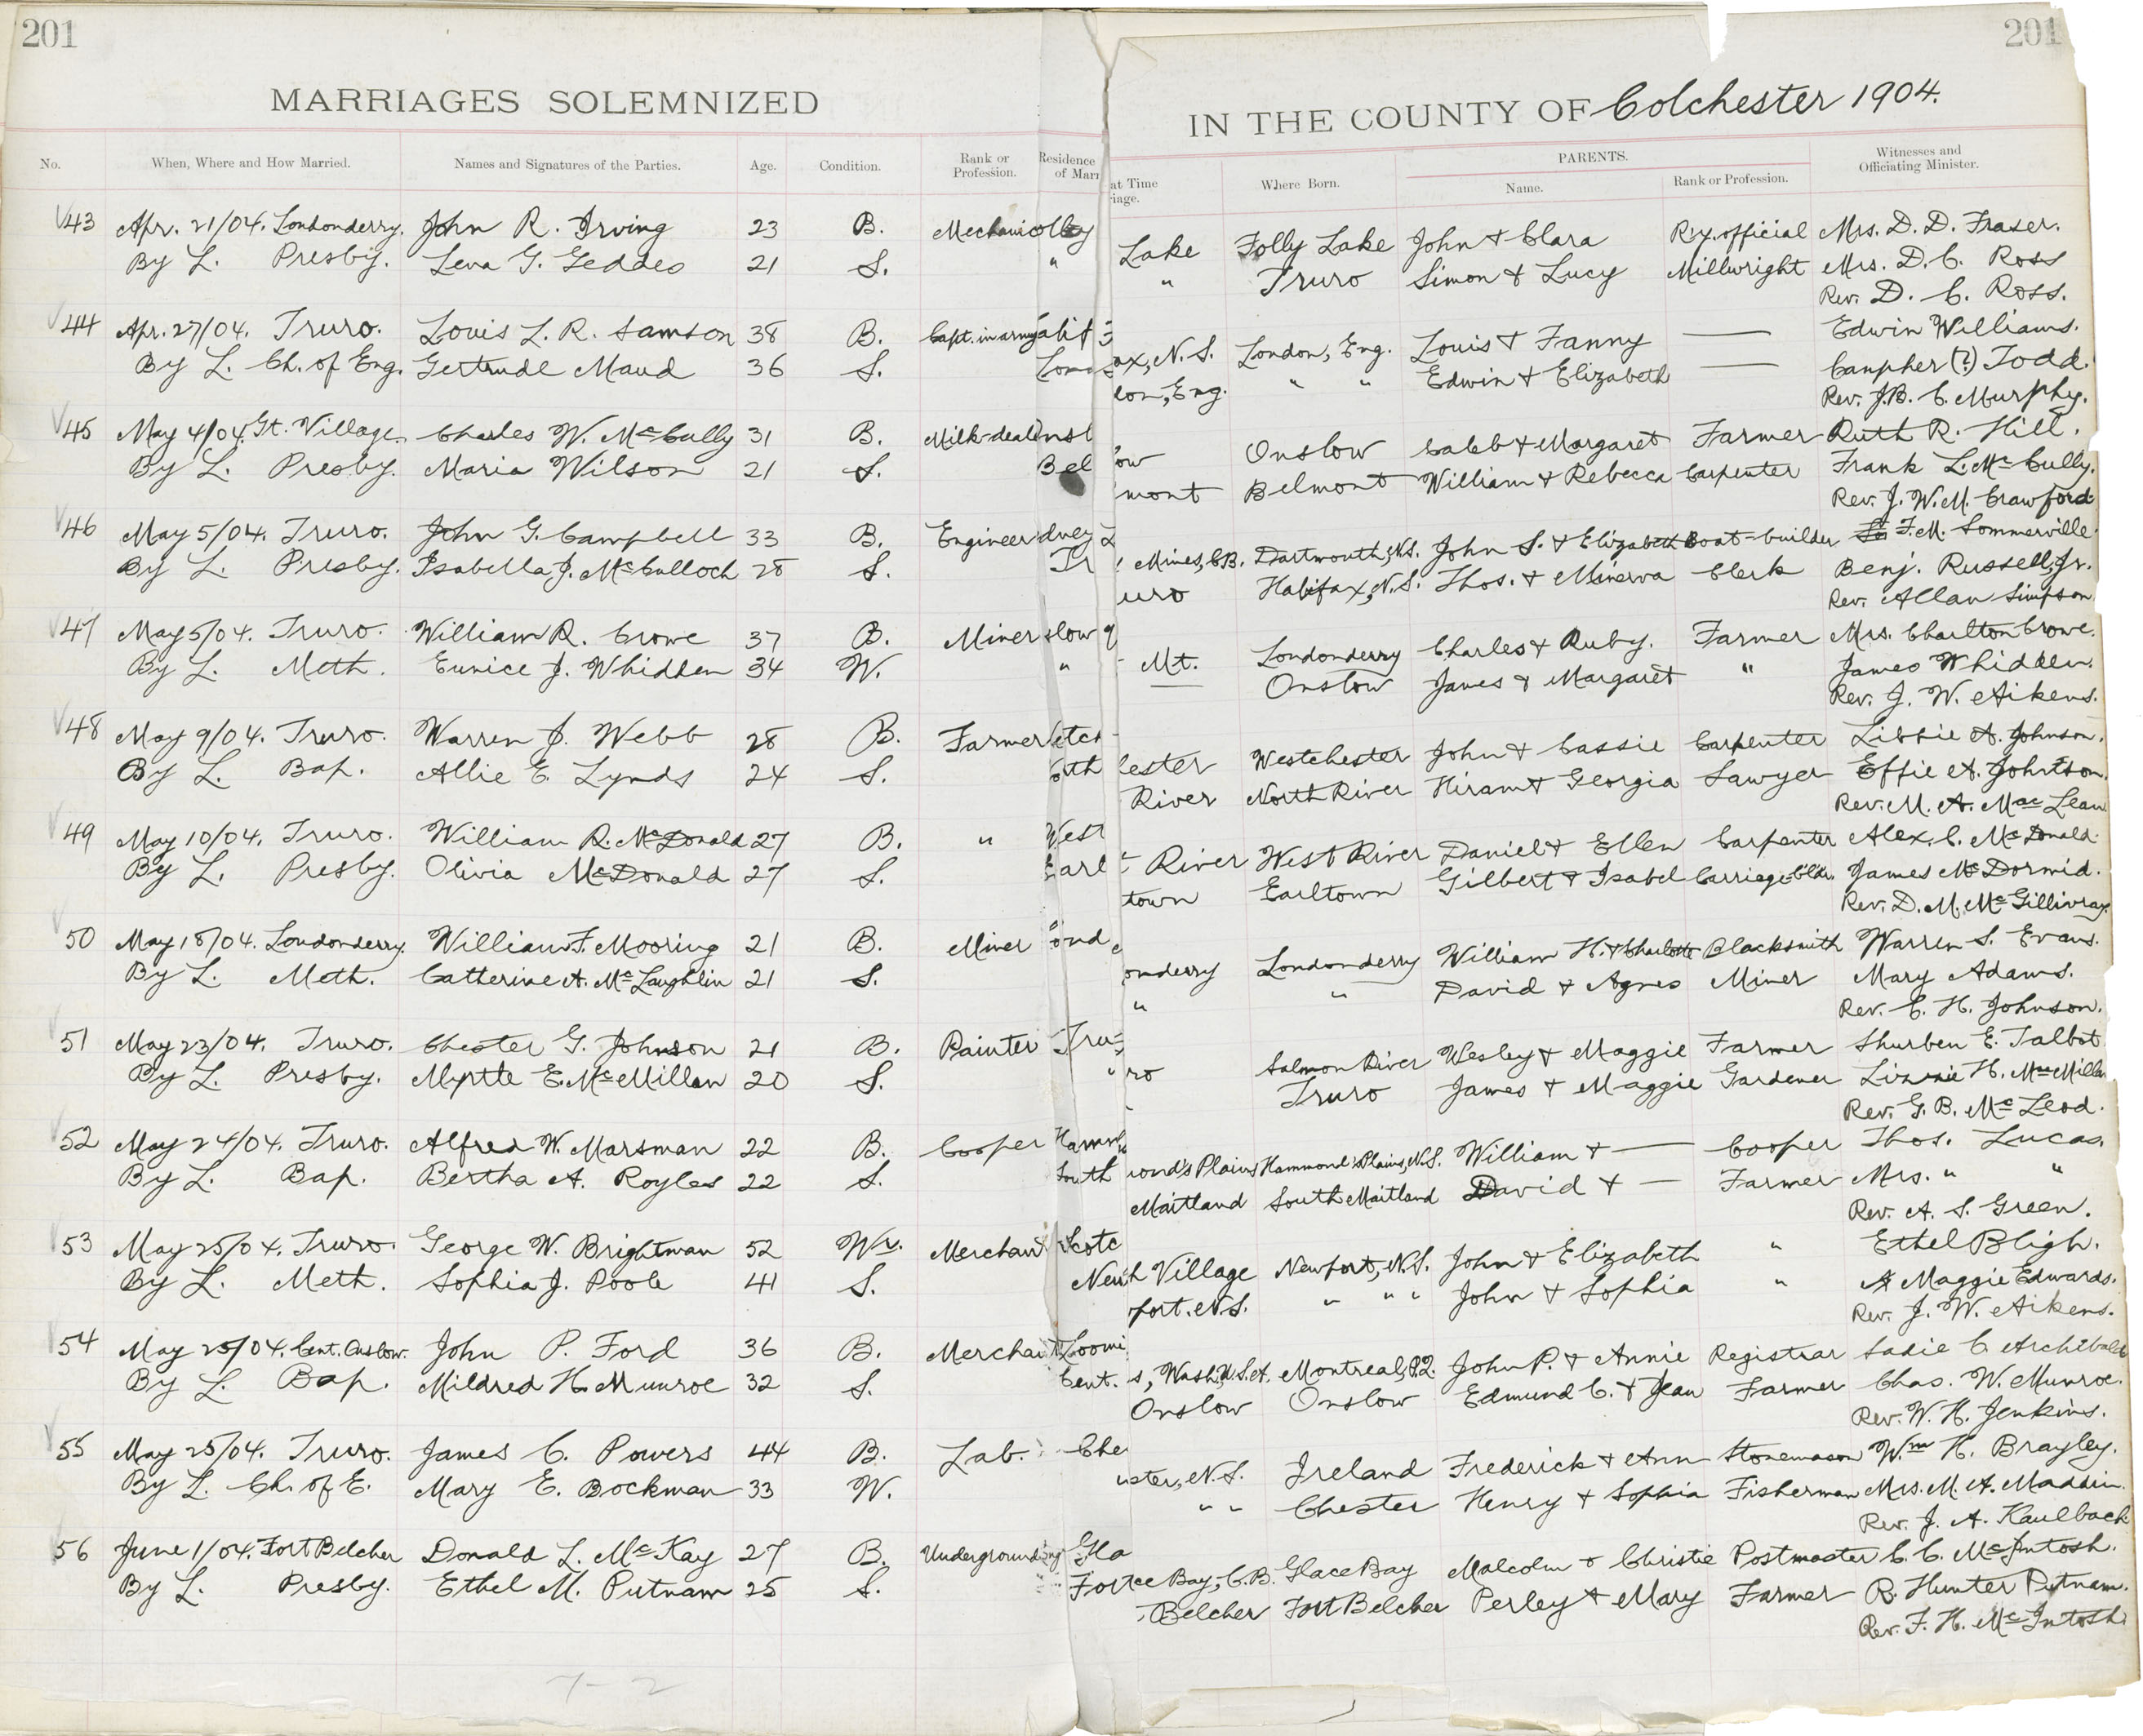 201
201
MARRIAGES SOLEMNIZED
IN THE COUNTY OF Colchester 1904.
No. When, Where and How Married. Names and Signatures of the Parties. Age. Condition. Rank or Profession. Residence at Time of Marriage. Where Born. PARENTS. Name. Rank or Profession. Witnesses and Officiating Minister.
43 Apr. 21/04. Londonderry. John R. Irving 23 B. Mechanic olly Lake Folly Lake John + Clara R'y. official Mrs. D. D. Fraser.
By L. Presby. Lena G. Geddes 21 S. " " Truro Simon + Lucy Millwright Mrs. D. C. Ross
Rev. D. C. Ross.
44 Apr. 27/04. Truro. Louis L. R. Samson 38 B. Capt. in army alifax, N.S. London, Eng. Louis + Fanny —
By L. Ch. of Eng. Gertrude Maud 36 S. London, Eng. " " Edwin + Elizabeth — Edwin Williams.
Canpher (?) Todd.
Rev. J.B. C. Murphy.
45 May 4/04. Gt. Village. Charles W. McCully 31 B. Milk-deal Onslow Onslow Caleb + Margaret Farmer Ruth R. Hill.
By L. Presby. Maria Wilson 21 S. Belmont Belmont William + Rebecca Carpenter Frank L. McCully.
Rev. J. W. M. Crawford
46 May 5/04. Truro. John G. Campbell 33 B. Engineer dney Mines, C.B. Dartmouth, N.S. John S. + Elizabeth Boat-builder F.M. Sommerville.
By L. Presby. Isabella J. McCulloch 28 S. Truro Halifax, N.S. Thos. + Minerva Clerk Benj. Russell, Jr.
Rev. Allan Simpson
47 May 5/04. Truro. William R. Crowe 37 B. Miner slow Mt. Londonderry Charles + Ruby. Farmer Mrs. Charlton Crowe.
By L. Meth. Eunice J. Whidden 34 W. " — Onslow James + Margaret " James Whidden.
Rev. J. W. Aikens.
48 May 9/04. Truro. Warren J. Webb 28 B. Farmer etchester Westchester John + Cassie Carpenter Libbie A. Johnson.
By L. Bap. Allie E. Lynds 24 S. orth River North River Hiram + Georgia Sawyer Effie A. Johnson.
Rev. M. A. MacLean
49 May 10/04. Truro. William R. McDonald 27 B. " West River West River Daniel + Ellen Carpenter Alex. C. McDonald.
By L. Presby. Olivia McDonald 27 S. Earltown Earltown Gilbert + Isabel Carriage-bldr. James McDormid.
Rev. D. M. McGillivray.
50 May 18/04. Londonderry. William F. Mooring 21 B. Miner ondonderry Londonderry William H. + Charlotte Blacksmith Warren S. Evans.
By L. Meth. Catherine A. McLaughlin 21 S. " " David + Agnes Miner Mary Adams.
Rev. C. H. Johnson.
51 May 23/04. Truro. Chester G. Johnson 21 B. Painter Truro Salmon River Wesley + Maggie Farmer Shurben E. Talbot
By L. Presby. Myrtle E. McMillan 20 S. " Truro James + Maggie Gardener Lizzie H. MacMillan
Rev. G. B. McLeod.
52 May 24/04. Truro. Alfred W. Marsman 22 B. Cooper Hammond's Plains Hammond's Plains, N.S. William + — Cooper Thos. Lucas.
By L. Bap. Bertha A. Royles 22 S. South Maitland South Maitland David + — Farmer Mrs. " "
Rev. A. S. Green.
53 May 25/04. Truro. George W. Brightman 52 Wr. Merchant Scotch Village Newport, N.S. John + Elizabeth " Ethel Bligh.
By L. Meth. Sophia J. Poole 41 S. Newport. N.S. " " " John + Sophia " Maggie Edwards.
Rev. J. W. Aikens.
54 May 25/04. Cent. Onslow. John P. Ford 36 B. Merchant Loomis, Wash, U.S.A. Montreal, P.Q. John P. + Annie Registrar Sadie C. Archibald
By L. Bap. Mildred H. Munroe 32 S. Cent. Onslow Onslow Edmund C. + Jean Farmer Chas. W. Munroe.
Rev. W. H. Jenkins.
55 May 25/04. Truro. James C. Powers 44 B. Lab. Chester, N.S. Ireland Frederick + Ann Stonemason Wm H. Brayley.
By L. Ch. of E. Mary E. Bockman 33 W. " " Chester Henry + Sophia Fisherman Mrs. M. A. Maddin.
Rev. J. A. Kaulback
56 June 1/04. Fort Belcher Donald L. McKay 27 B. Underground Glace Bay, C.B. Glace Bay Malcolm + Christie Postmaster C. C. McIntosh.
By L. Presby. Ethel M. Putnam 25 S. Fort Belcher Fort Belcher Perley + Mary Farmer R. Hunter Putnam.
Rev. F. H. McIntosh